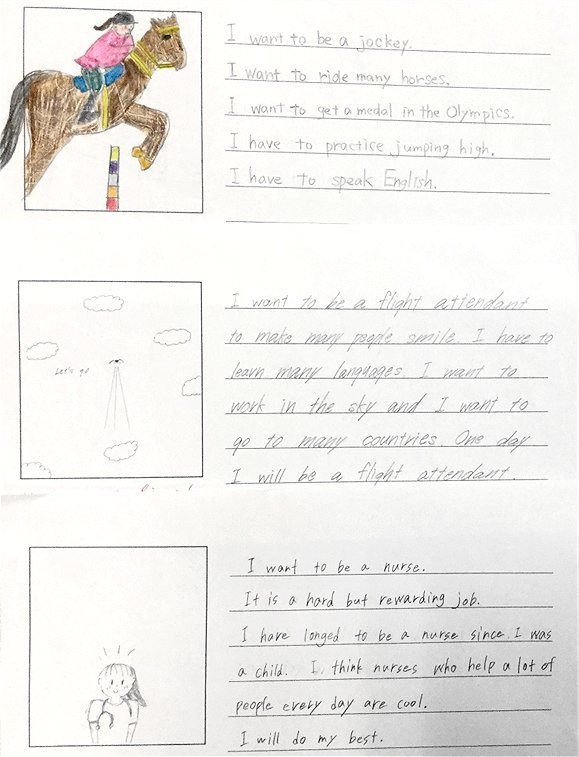 I want to be a jockey.
I want to ride many horses.
I want to get a medal in the Olympics.
I have to practice jumping high.
I have to speak English.
Let's go
I want to be a flight attendant
to make many people smile. I have to
learn many languages. I want to
work in the sky and I want to
go to many countries. One day
I will be a flight attendant.
I want to be a nurse.
It is a hard but rewarding job.
I have longed to be a nurse since I was
a child. I think nurses who help a lot of
people every day are cool.
I will do my best.